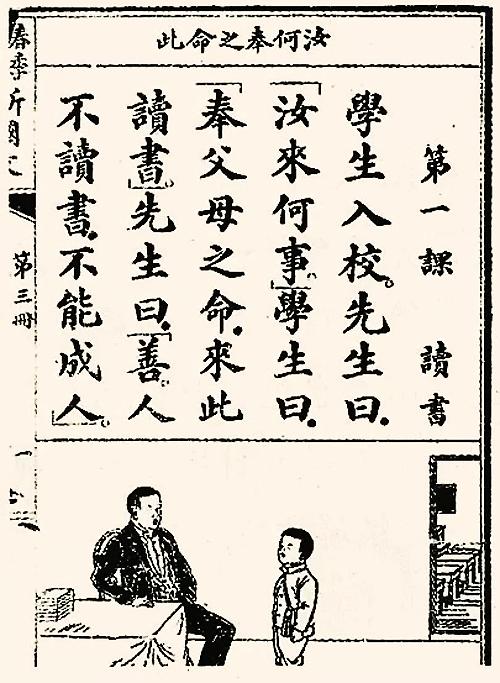 汝何奉之命此
第一課 讀書
學生入校。先生曰.
「汝來何事。」學生曰.
「奉父母之命.來此
讀書。」先生曰.「善。人
不讀書.不能成人。」
第三冊